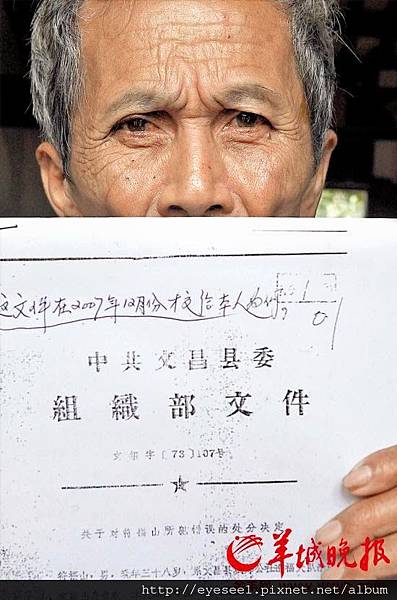 文件在2007年12月份才交给本人
中共文昌县委
組織部文件
字(73)107号
关于对符指山所犯错误的处分决定
羊城晚报
男，现年三十八岁，原文昌县
http://eyesee1.pixnet.net/album